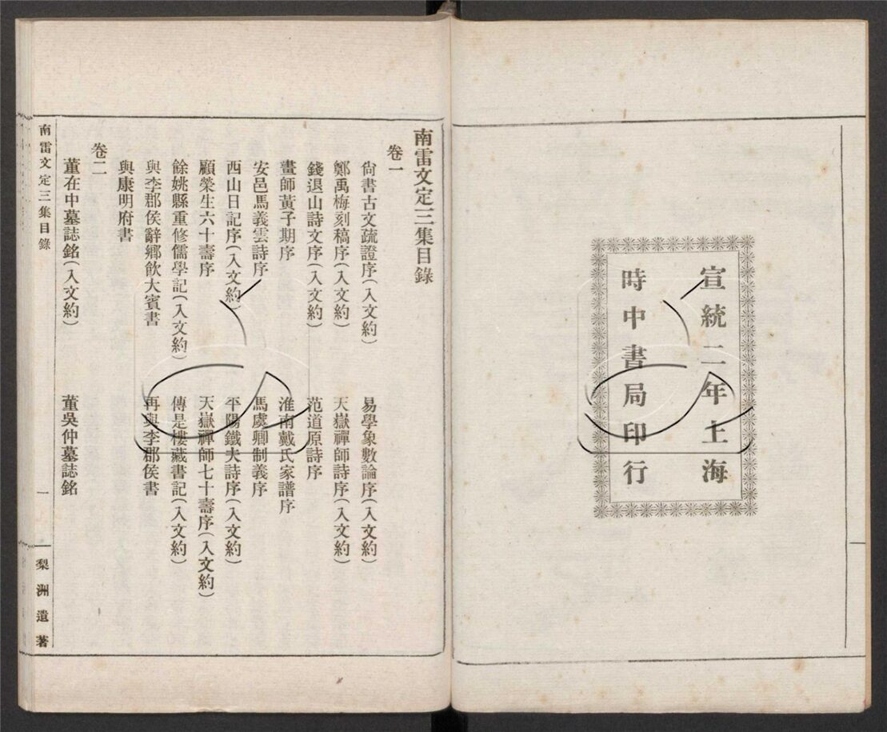 宣統二年上海
時中書局印行
南雷文定三集目錄
卷一
尙書古文疏證序(入文約) 易學象數論序(入文約)
鄭禹梅刻稿序(入文約) 天嶽禪師詩序(入文約)
錢退山詩文序(入文約) 范道原詩序
畫師黃子期序 淮南戴氏家譜序
安邑馬義雲詩序 馬虞卿制義序
西山日記序(入文約) 平陽鐵夫詩序(入文約)
顧榮生六十壽序 天嶽禪師七十壽序(入文約)
餘姚縣重修儒學記(入文約) 傳是樓藏書記(入文約)
與李郡侯辭鄉飲大賓書 再與李郡侯書
與康明府書
卷二
董在中墓誌銘(入文約) 董吳仲墓誌銘
南雷文定三集目錄 一 梨洲遺著